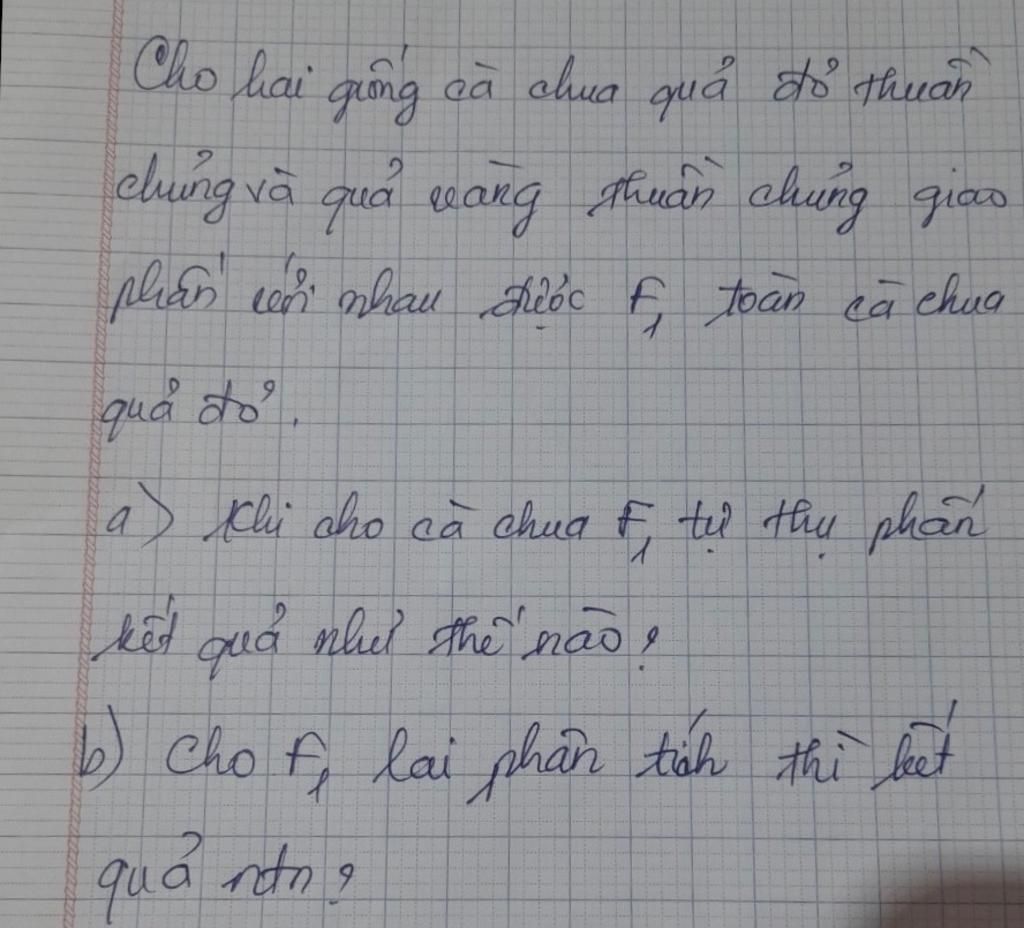 Cho hai giống cà chua quả đỏ thuần
chủng và quả vàng thuần chủng giao
phấn với nhau được F1 toàn cà chua
quả đỏ.
a) Khi cho cà chua F1 tự thụ phấn
kết quả như thế nào?
b) Cho F1 lai phân tích thì kết
quả ntn?